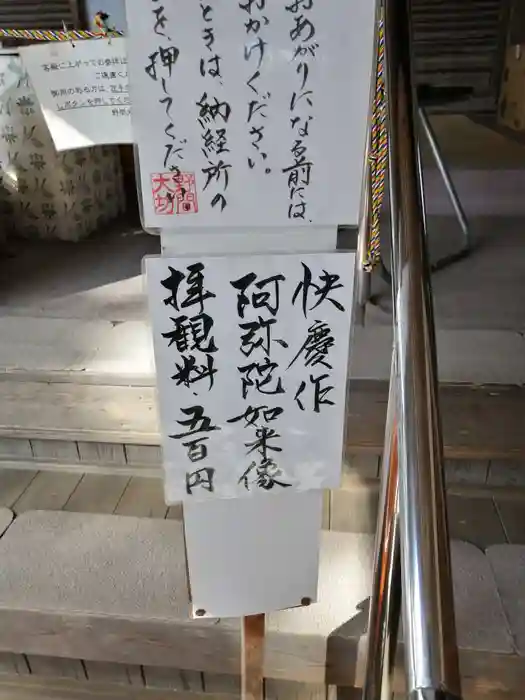 おあがりになる前には、
おかけください。
ときは、納経所の
を、押してください
野間
大坊
客殿に上がっての参拝は
ご遠慮くだ
御用のある方は、
しボタンを押してくだ
快慶作
阿弥陀如来像
拝観料・五百円